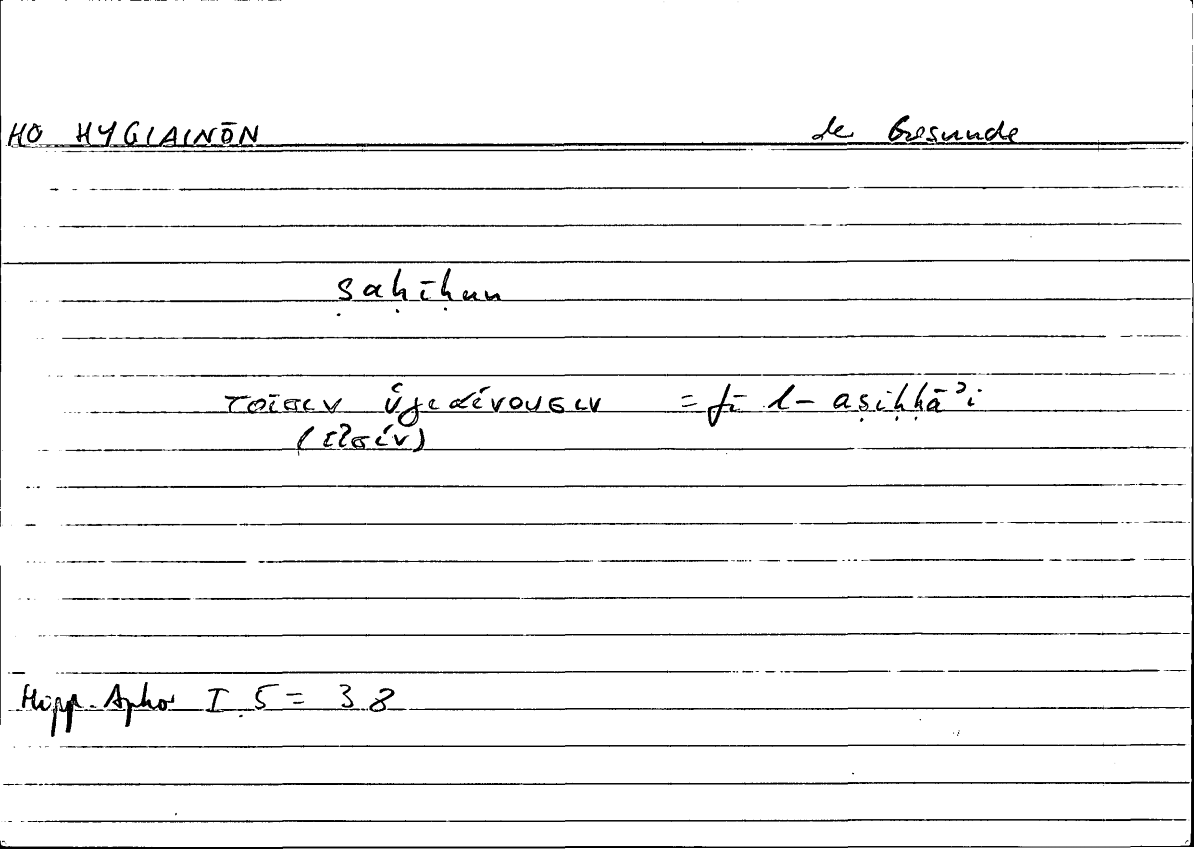 HO HYGIAINŌN der Gesunde
ṣaḥīḥun
τοῖσιν ὑγιαίνουσιν = fī l-aṣiḥḥāʾi
(εἰσίν)
Hipp. Aphor I 5 = 3 8